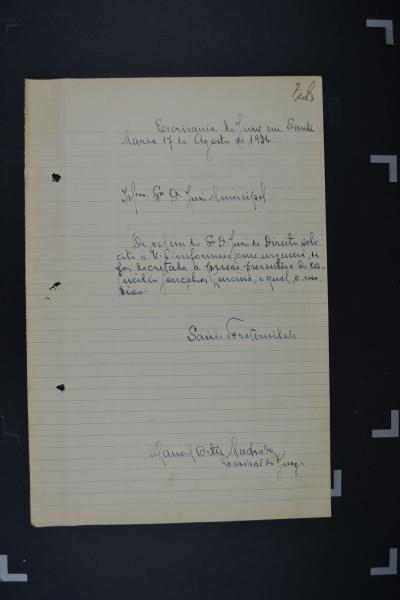 Escrivania do Jury em Santa
Maria 17 de Agosto de 1936
Ilmo. Sr. Dr. Juiz Municipal
De ordem do Sr. D. Juiz de Direito soli-
cito a V. S. informar, com urgencia, se
foi decretada a prisão preventiva de
Gonçalves, e qual o mo-
tivo.
Saúde e Fraternidade
Manoel Machado
Escrivão do Jury